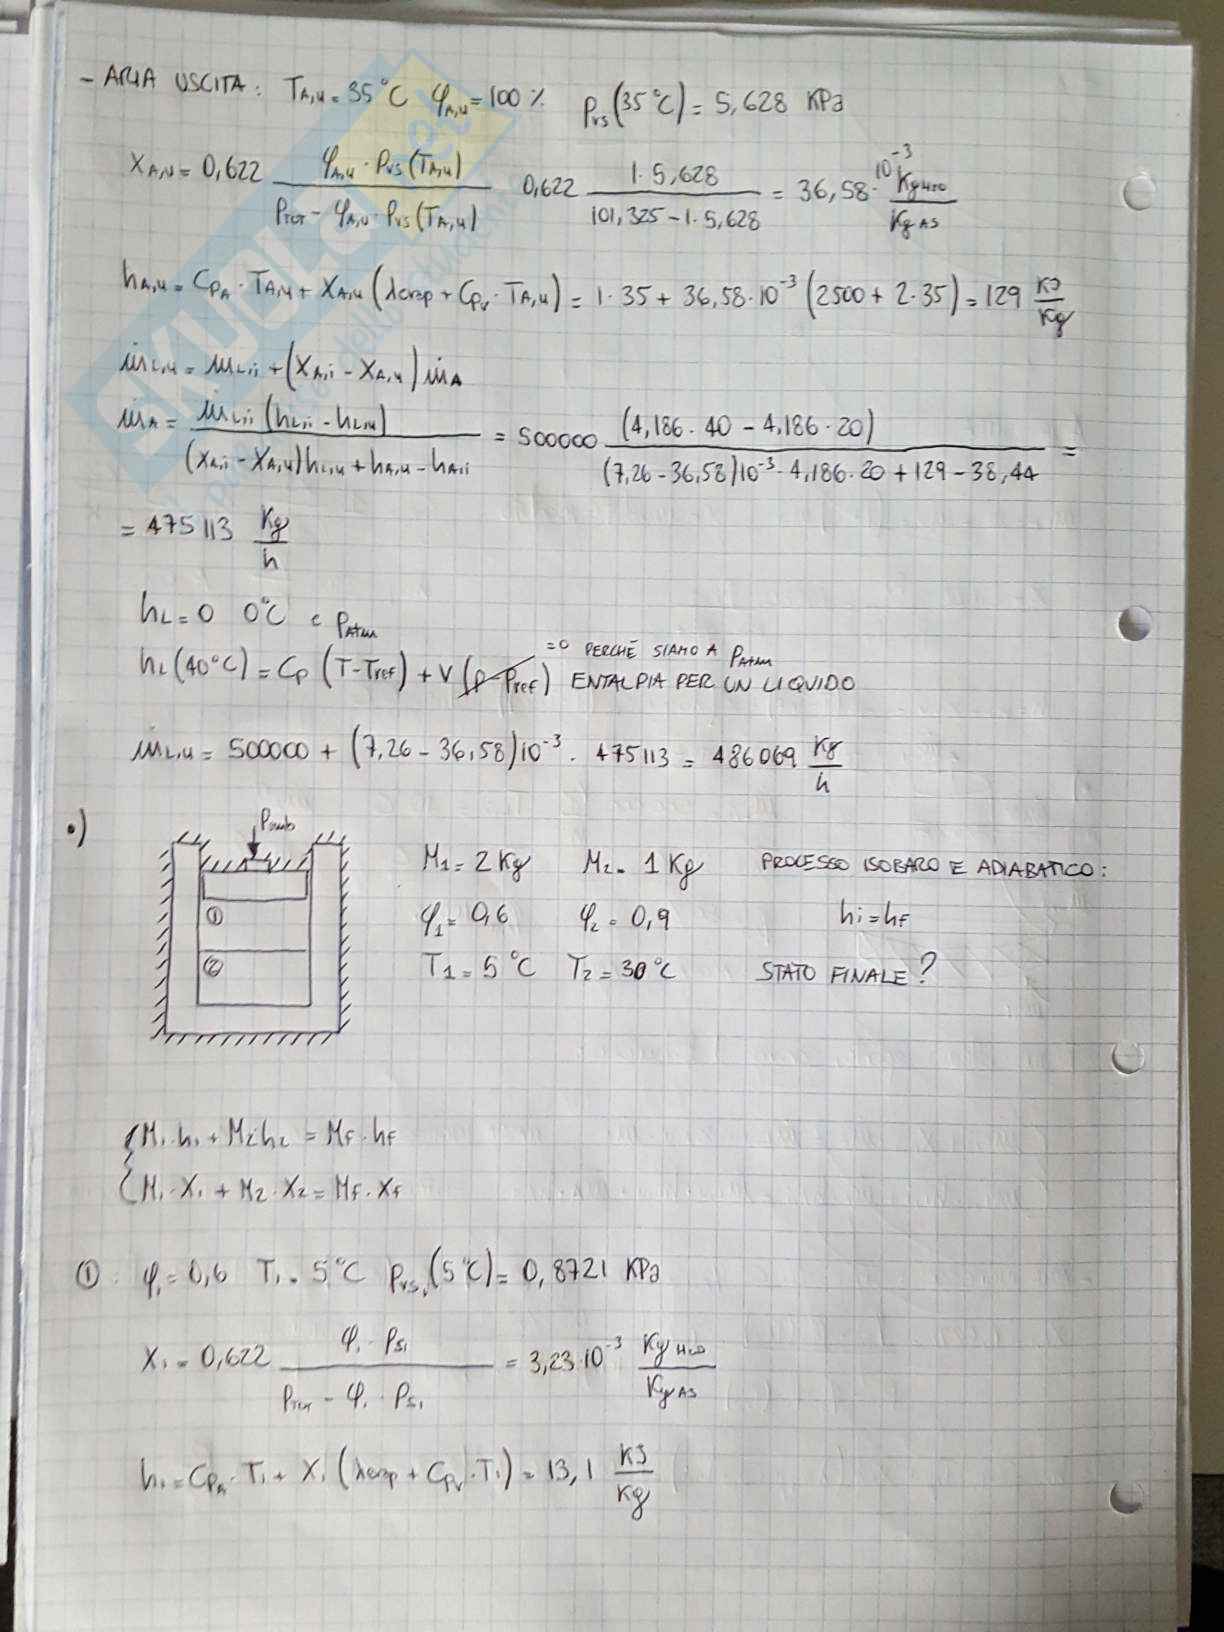 - ARIA USCITA: T_A,u = 35°C φ_A,u = 100% P_vs(35°C) = 5,628 KPa
X_A,u = 0,622 (φ_A,u · P_vs(T_A,u)) / (P_TOT - φ_A,u · P_vs(T_A,u)) 0,622 (1 · 5,628) / (101,325 - 1 · 5,628) = 36,58 · 10^-3 Kg_H2O / Kg_AS
h_A,u = Cp_A · T_A,u + X_A,u (λevap + Cp_v · T_A,u) = 1 · 35 + 36,58 · 10^-3 (2500 + 2 · 35) = 129 KJ/Kg
ṁ_L,u = ṁ_L,i + (X_A,i - X_A,u) ṁ_A
ṁ_A = ṁ_L,i (h_L,i - h_L,u) / ((X_A,i - X_A,u) h_L,u + h_A,u - h_A,i) = 500000 (4,186 · 40 - 4,186 · 20) / ((7,26 - 36,58) 10^-3 · 4,186 · 20 + 129 - 38,44) =
= 475113 Kg/h
h_L = 0 0°C e P_Atm
h_L (40°C) = Cp (T - T_ref) + V (P - P_ref) =0 PERCHÉ SIAMO A P_Atm
ENTALPIA PER UN LIQUIDO
ṁ_L,u = 500000 + (7,26 - 36,58) 10^-3 · 475113 = 486069 Kg/h
•)
P_amb
①
②
M_1 = 2 Kg M_2 = 1 Kg PROCESSO ISOBARO E ADIABATICO:
φ_1 = 0,6 φ_2 = 0,9 h_i = h_F
T_1 = 5°C T_2 = 30°C STATO FINALE?
M_1 · h_1 + M_2 h_2 = M_F · h_F
M_1 · X_1 + M_2 · X_2 = M_F · X_F
①: φ_1 = 0,6 T_1 = 5°C P_vs,1 (5°C) = 0,8721 KPa
X_1 = 0,622 (φ_1 · P_S1) / (P_TOT - φ_1 · P_S1) = 3,23 · 10^-3 Kg_H2O / Kg_AS
h_1 = Cp_A · T_1 + X_1 (λevap + Cp_v · T_1) = 13,1 KJ/Kg
SKUOLA.net